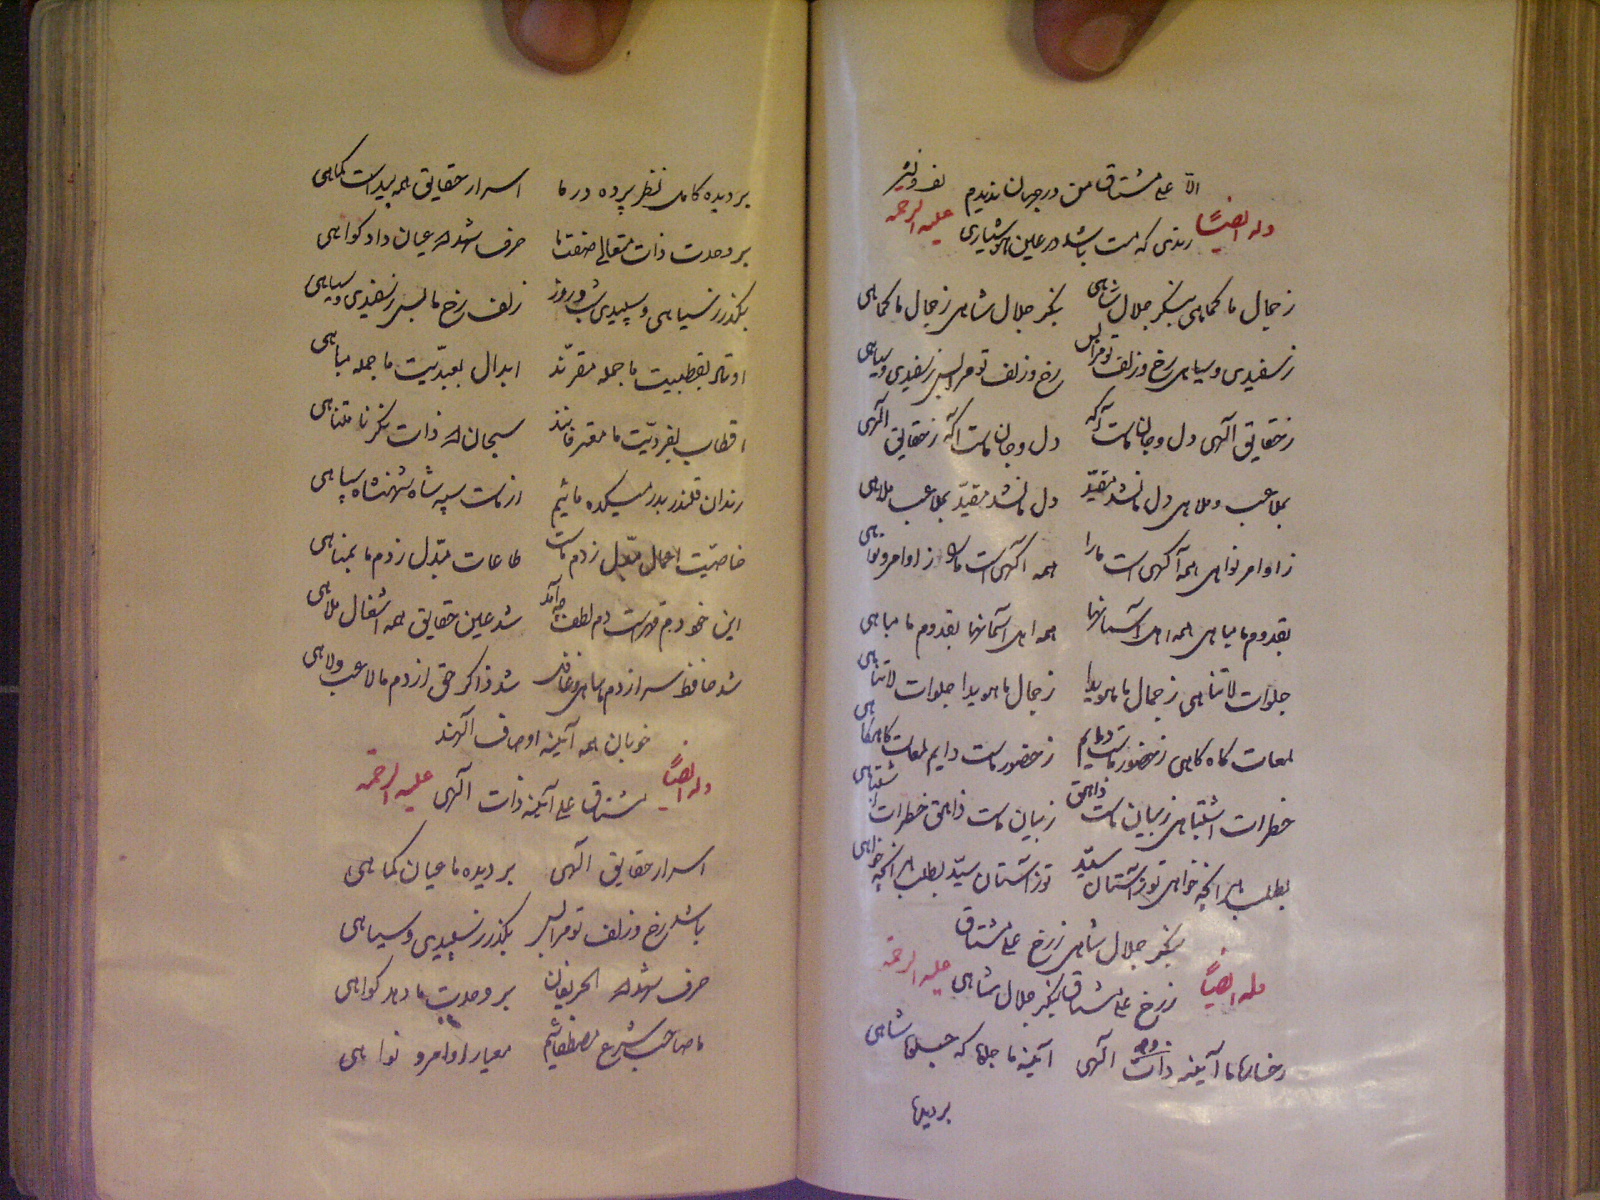 الا علی مشتاق من در جهان ندیدم
وله ایضاً رندی که مست باشد در عین هوشیاری علیه الرحمه
ز جمال ما کماهی بنگر جلال شاهی بنگر جلال شاهی ز جمال ما کماهی
ز سفیدی و سیاهی رخ و زلف تو مرا بس رخ و زلف تو مرا بس ز سفیدی و سیاهی
ز حقایق الهی دل و جان ماست آگه دل و جان ماست آگه ز حقایق الهی
بملاعب و ملاهی دل ما نشد مقید دل ما نشد مقید بملاعب و ملاهی
ز اوامر و نواهی همه آگهی است ما را همه آگهی است ما را ز اوامر و نواهی
بقدوم ما مباهی همه اهل آسمانها همه اهل آسمانها بقدوم ما مباهی
جلوات لاتناهی ز جمال ما هویدا ز جمال ما هویدا جلوات لاتناهی
لمعات گاه گاهی ز حضور ماست دایم ز حضور ماست دایم لمعات گاه گاهی
خطرات اشتباهی ز بیان ماست ذاهق ز بیان ماست ذاهق خطرات اشتباهی
بطلب هر آنچه خواهی تو ز آستان سید تو ز آستان سید بطلب هر آنچه خواهی
بنگر جلال شاهی ز رخ علی مشتاق
وله ایضاً ز رخ علی مشتاق بنگر جلال شاهی علیه الرحمه
رخسار ما آئینه ذات الهی آئینه ما جلوه که جلوه شاهی
بر دیده
بر دیده کامل نظر پرده در ما اسرار حقایق همه پیداست کماهی
بر وحدت ذات متعالی صفت ما حرف شهد الله عیان داد گواهی
بگذر ز سیاهی و سپیدی شب و روز زلف و رخ ما بس ز سفیدی و سیاهی
اوتاد بقطبیت ما جمله مقرند ابدال بعبدیت ما جمله مباهی
اقطاب بفردیت ما معترفانند سبحان الله ذات نگر نامتناهی
رندان قلندر بدر میکده مائیم از ماست سپه شاه شهنشاه سپاهی
خاصیت اعمال مبدل ز دم ماست طاعات مبدل ز دم ما بمناهی
این خود دم قهرست دم لطف چو آمد شد عین حقایق همه اشغال ملاهی
شد حافظ سر از دم ما ساهی و غافل شد ذاکر حق از دم ما لاعب و لاهی
خوبان همه آئینه اوصاف الهند
وله ایضاً مشتاق علی آئینه ذات الهی علیه الرحمه
اسرار حقایق الهی بر دیده ما عیان کماهی
باشد رخ و زلف تو مرا بس بگذر ز سپیدی و سیاهی
حرف شهد الله بر وحدت ما دهد گواهی
ما صاحب شرع مصطفائیم معیار اوامر و نواهی